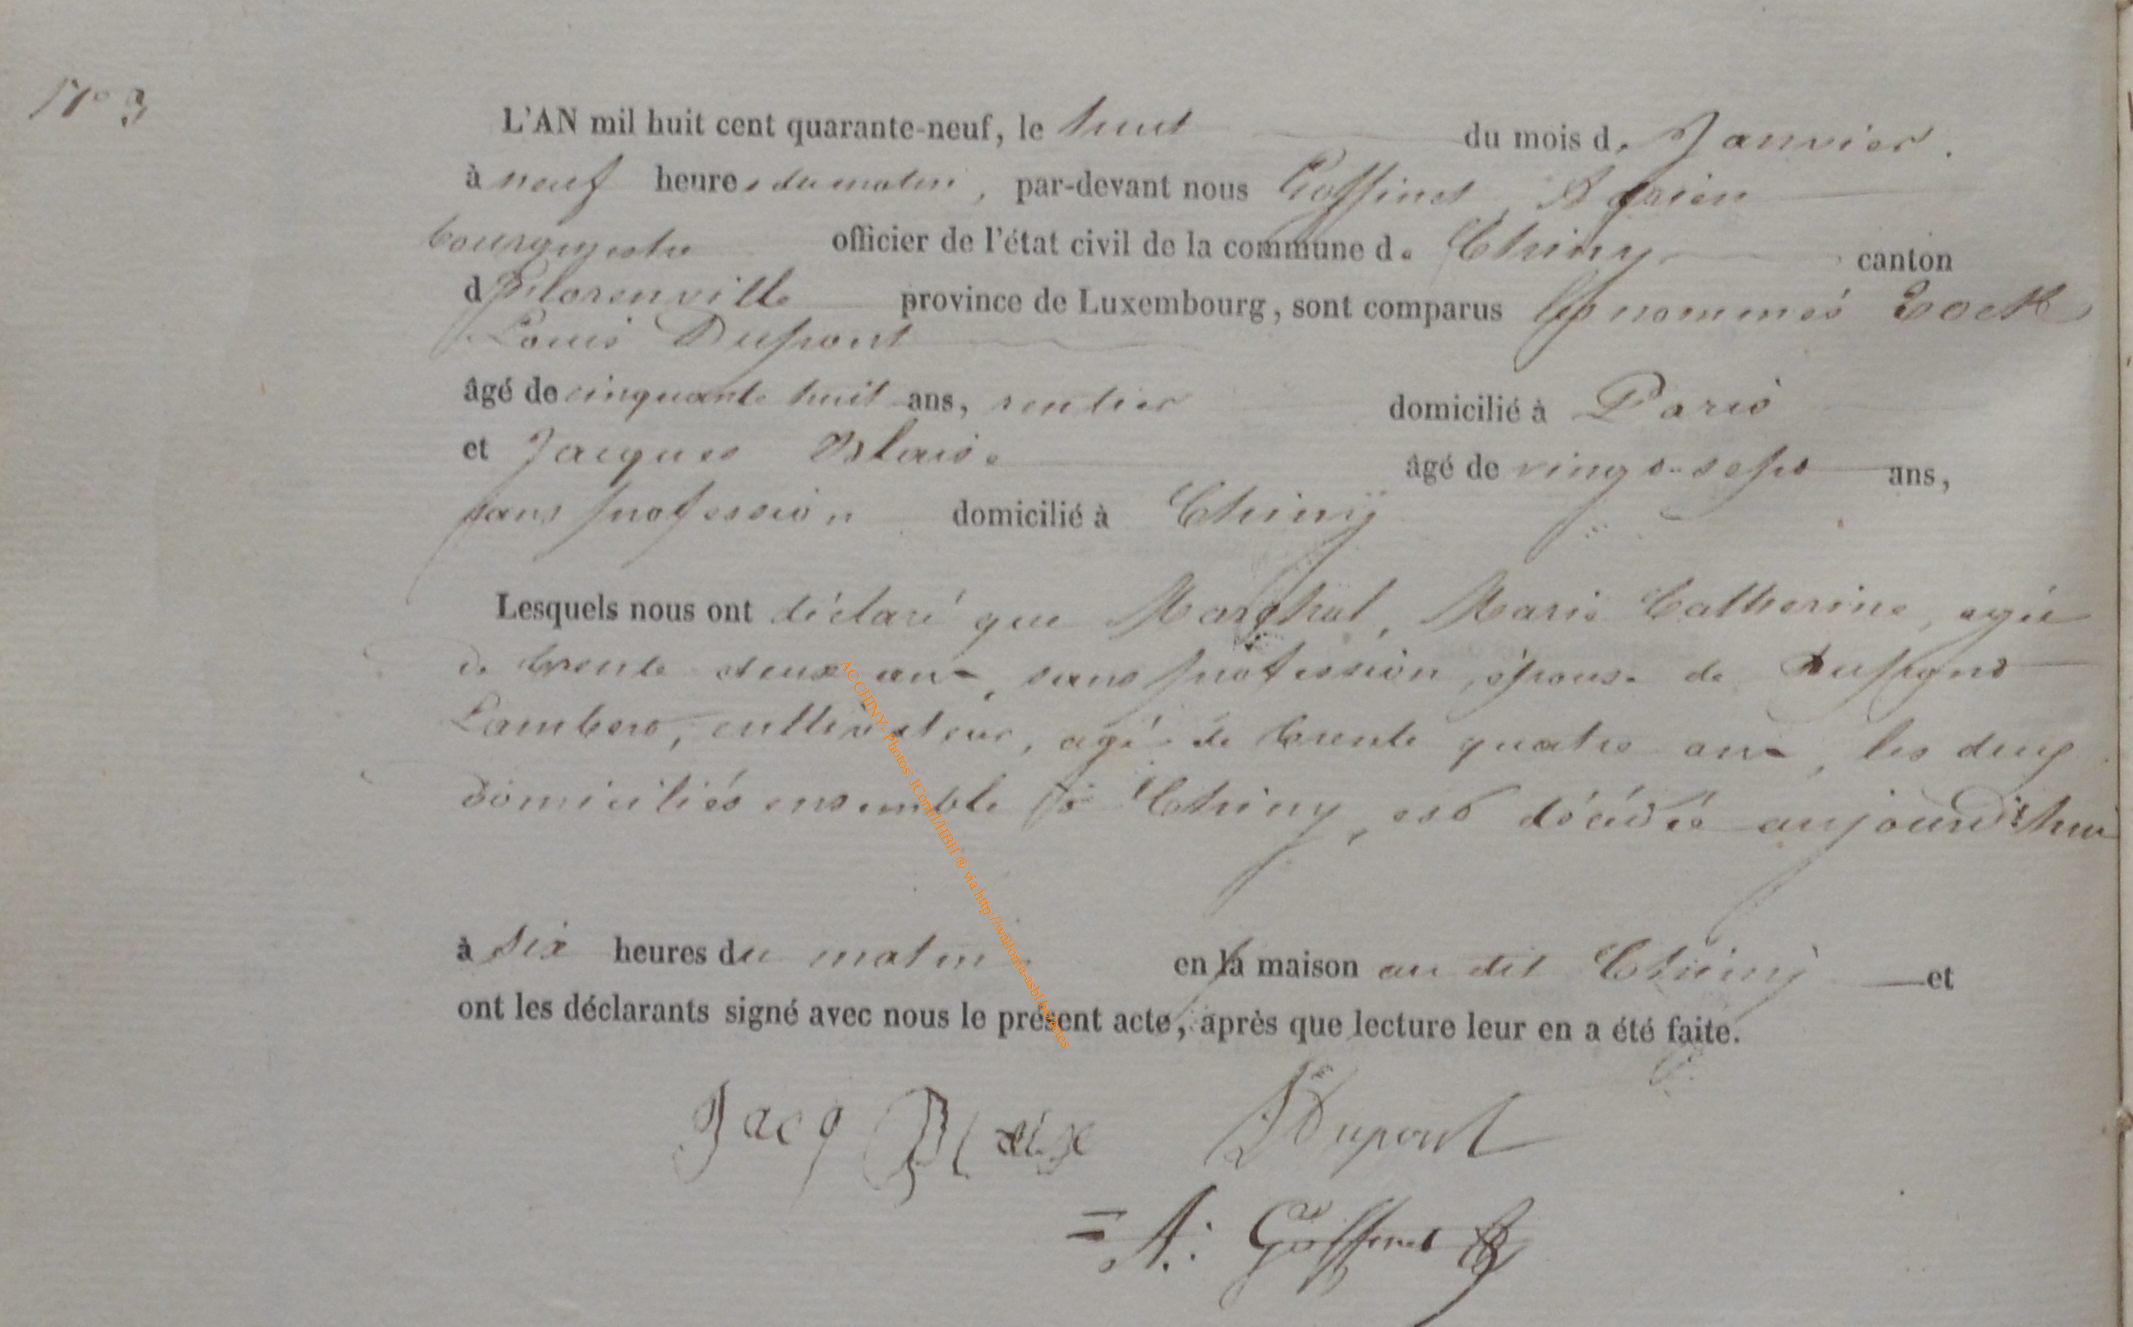 N° 3
L'AN mil huit cent quarante-neuf, le huit du mois de Janvier.
à neuf heures du matin, par-devant nous Goffinet, Adrien
bourgmestre officier de l'état civil de la commune de Chiny canton
de Florenville province de Luxembourg, sont comparus les nommés
Louis Dupont
âgé de cinquante huit ans, rentier domicilié à Paris
et Jacques Blaise âgé de vingt-sept ans,
sans profession domicilié à Chiny
Lesquels nous ont déclaré que Maréchal, Marie Catherine, agée
de trente deux ans, sans profession, épouse de Dupont
Lambert, cultivateur, agé de trente quatre ans, les deux
domiciliés ensemble à Chiny, est décédée aujourd'hui
à six heures du matin en la maison au dit Chiny et
ont les déclarants signé avec nous le présent acte, après que lecture leur en a été faite.
Jacq Blaise Dupont
A: Goffinet